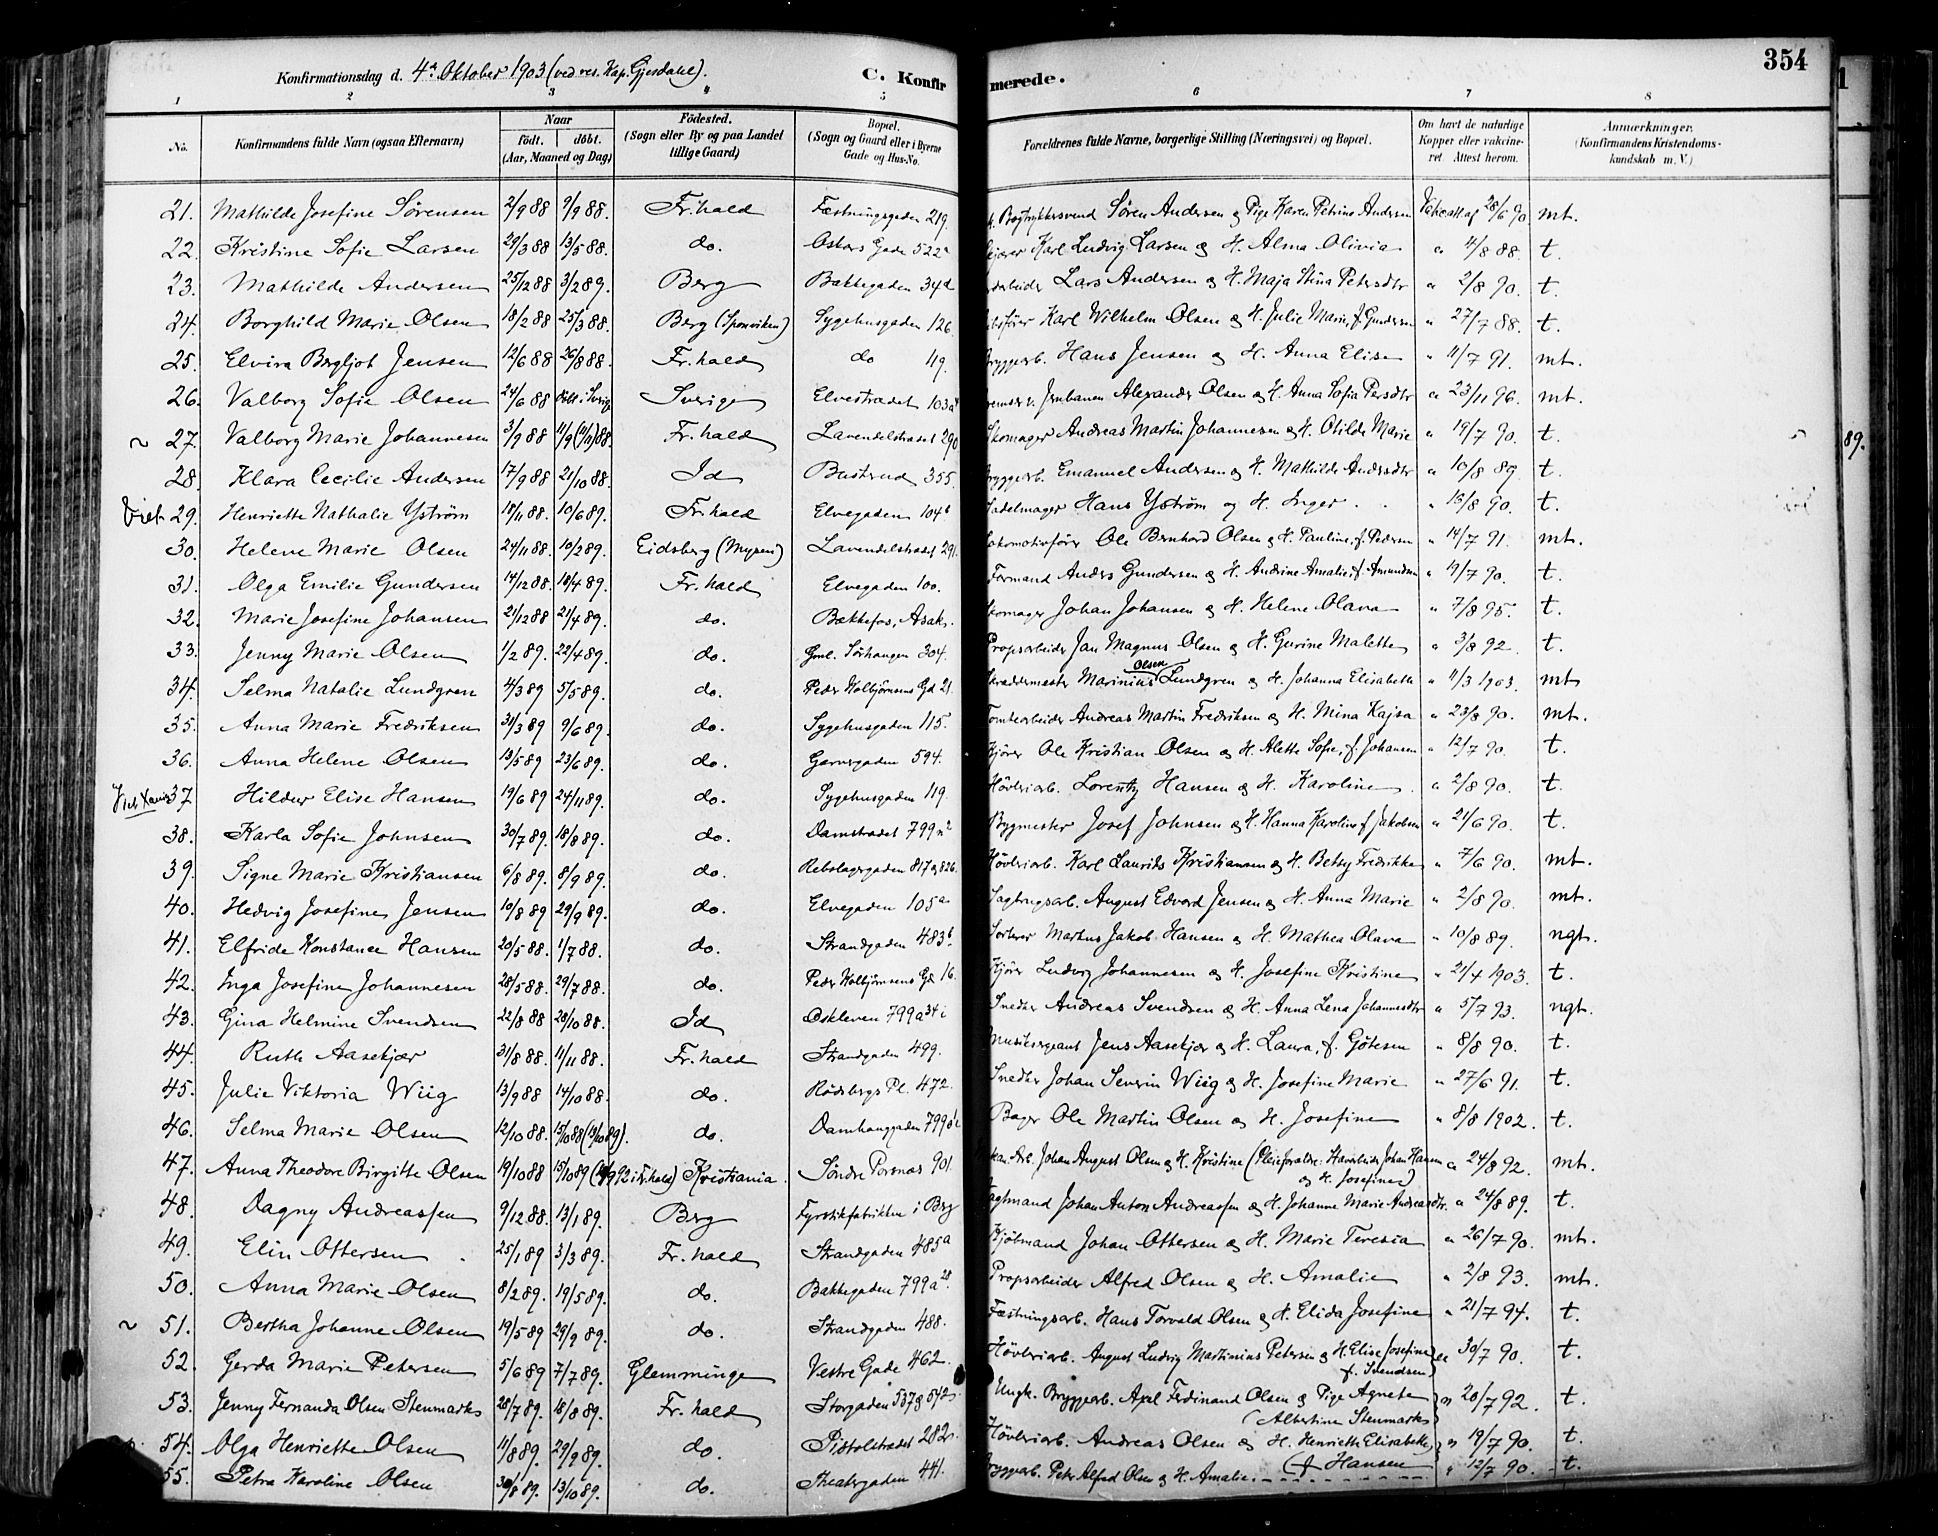 Konfirmationsdag d. 4de Oktober 1903 (ved res. Kap. Gjesdahl). C. Konfirmerede. 354
1 2 3 4 5 6 7 8
No. Konfirmandens fulde Navn (ogsaa Efternavn) Naar født. døbt. (Aar, Maaned og Dag) Fødested. (Sogn eller By og paa Landet tillige Gaard) Bopæl. (Sogn og Gaard eller i Byerne Gade og Hus-No. Forældrenes fulde Navne, borgerlige Stilling (Næringsvei) og Bopæl. Om havt de naturlige Kopper eller vaccineret. Attest herom. Anmærkninger. (Konfirmandens Kristendomskundskab m. V.)
21. Mathilde Josefine Sørensen 2/9 88 9/9 88. Fr.hald Fæstningsgaden 219. Bogtrykkersvend Søren Andersen og Pige Karen Petrine Andersen 28/6 90 mt.
22. Kristine Sofie Larsen 29/3 88 13/5 88. do. Oskars Gade 522a Karl Ludvig Larsen og H. Alma Olivia " 4/8 88. t.
23. Mathilde Andersen 25/12 88 3/2 89. Berg Bakkegaden 34d Lars Andersen og H. Maja Stina Petersdtr " 2/8 90. t.
24. Borghild Marie Olsen 18/2 88 25/3 88. Berg (Sponviken) Sygehusgaden 126. Karl Wilhelm Olsen og H. Julie Marie, f. Gundersen " 27/7 88. t.
25. Elvira Bergljot Jensen 12/6 88 26/8 88. Fr.hald do 119. Bryggearb. Hans Jensen og H. Anna Elise " 11/7 91. mt.
26. Valborg Sofie Olsen 24/6 88 døbt i Sverige Sverige Elvestrædet 103a v. Jernbanen Alexander Olsen og H. Anna Sofia Persdtr " 23/11 96. mt.
~ 27. Valborg Marie Johannesen 3/9 88 11/9 (4/11) 88. Fr.hald Lavendelstrædet 290 Skomager Andreas Martin Johannesen og H. Otilde Marie " 19/7 90. t.
28. Klara Cecilie Andersen 17/9 88 21/10 88. Id Busterud 355. Bryggearb. Emanuel Andersen og H. Mathilde Andersdtr " 10/8 89. t.
Viet 29. Henriette Nathalie Yström 18/11 88. 10/6 89. Fr.hald Elvegaden 104b Sadelmager Hans Yström og H. Inger " 13/8 90. t.
30. Helene Marie Olsen 24/11 88. 10/2 89. Eidsberg (Mysen) Lavendelstrædet 291. Lokomotivfører Ole Bernhard Olsen og H. Pauline, f. Pedersen " 14/7 91. mt.
31. Olga Emilie Gundersen 14/12 88. 18/4 89. Fr.hald Elvegaden 100. Formand Anders Gundersen og H. Andrine Amalie, f. Amundsen " 19/7 90. t.
32. Marie Josefine Johansen 21/12 88 21/4 89. do. Bækkefos, Asak. Skomager Johan Johansen og H. Helene Olava " 7/8 95. t.
33. Jenny Marie Olsen 1/2 89. 22/4 89. do. Gml. Sørhaugen 304. Propsarbeider Jan Magnus Olsen og H. Gurine Malette " 3/8 92. t.
34. Selma Natalie Lundgren 4/3 89 5/5 89. do. Peder Kolbjørnsens Gd 21. Skræddermester Marinius Olsen Lundgren og H. Johanna Elisabeth " 11/3 1903. mt
35. Anna Marie Fredriksen 31/3 89 9/6 89. do. Sygehusgaden 115. Tomtearbeider Andreas Martin Fredriksen og H. Mina Kajsa " 23/8 90. mt.
36. Anna Helene Olsen 13/5 89 23/6 89. do. Garvergaden 594. Kjører Ole Kristian Olsen og H. Alette Sofie, f. Johansen " 12/7 90. t.
37 Hildur Elise Hansen 19/6 89 24/11 89. do. Sygehusgaden 119. Høvleriarb. Lorentz Hansen og H. Karoline " 2/8 90. t.
38. Karla Sofie Johnsen 30/7 89. 18/8 89. do. Damstrædet 799n2 Bygmester Josef Johnsen og H. Hanna Karoline f. Jakobsen " 21/6 90. t.
39. Signe Marie Kristiansen 6/8 89. 8/9 89. do. Rebslagergaden 817 og 826. Høvleriarb. Karl Laurits Kristiansen og H. Betsy Fredrikke " 7/6 90. mt.
40. Hedvig Josefine Jensen 10/8 89 29/9 89. do. Elvegaden 105a Sagbrugsarb. August Edvard Jensen og H. Anna Marie " 2/8 90. mt.
41. Elfride Konstance Hansen 20/5 88. 1/7 88. do. Strandgaden 483b. Sorterer Markus Jakob Hansen og H. Mathea Olava " 10/8 89. ngt.
42. Inga Josefine Johannesen 28/5 88. 29/7 88. do. Peder Kolbjørnsens Gd 16. Kjører Ludvig Johannesen og H. Josefine Kristine " 21/4 1903. t.
43. Gina Helmine Svendsen 22/8 88 28/10 88. Id Oskleven 799a34 i Snedker Andreas Svendsen og H. Anna Lena Johannesdtr " 5/7 93. ngt.
44. Ruth Aasekjær 31/8 88. 11/11 88. Fr.hald Strandgaden 499. Musiksergeant Jens Aasekjær og H. Laura, f. Gøtesen " 8/8 90. t.
45. Julie Viktoria Wiig 13/9 88 14/10 88. do. Rødsbergs Pl. 472. Snedker Johan Severin Wiig og H. Josefine Marie " 27/6 91. t.
46. Selma Marie Olsen 12/10 88. 15/10 88 (13/10 89). do. Damhauggaden 799 Bager Ole Martin Olsen og H. Josefine " 8/8 1902. t.
47. Anna Theodore Birgitte Olsen 19/10 88 15/10 89 (9/9 92 i Fr.hald) Kristiania. Søndre Porsnæs 901. Arb. Johan August Olsen og H. Kristine (Pleieforældre: Johan Hansen og H. Josefine) " 24/8 92. mt.
48. Dagny Andreassen 9/12 88. 13/1 89. Berg Fyrstikfabrikken i Berg Johan Anton Andreassen og H. Johanne Marie Andreasdtr. " 24/8 89. t.
49. Elin Ottersen 25/1 89 3/3 89. Fr.hald Strandgaden 485a Kjøbmand Johan Ottersen og H. Marie Teresia " 26/7 90. mt.
50. Anna Marie Olsen 8/2 89. 19/5 89. do. Bakkegaden 799a28. Propsarbeider Alfred Olsen og H. Amalie " 2/8 93. mt.
~ 51. Bertha Johanne Olsen 19/5 89 29/9 89. do. Strandgaden 488. Fæstningsarb. Hans Torvald Olsen og H. Elida Josefine " 21/7 94. t.
52. Gerda Marie Petersen 5/6 89 7/7 89. Glemminge Vestre Gade 462. Høvleriarb. August Ludvig Martinius Petersen og H. Elise Josefine f. Svendsen " 30/7 90. t.
53. Jenny Fernanda Olsen Stenmark 28/7 89. 18/8 89. Fr.hald Storgaden 537 og 542. Ungk. Bryggearb. Axel Ferdinand Olsen og Pige Agnete Albertine Stenmark " 20/7 92. t.
54. Olga Henriette Olsen 11/8 89. 29/9 89. do. Pistolstrædet 282. Høvleriarb. Andreas Olsen og H. Henriette Elisabeth f. Hansen " 19/7 90. t.
55. Petra Karoline Olsen 30/8 89. 13/10 89. do. Theatergaden 441. Bryggearb. Peter Alfred Olsen og H. Amalie " 12/7 90. t.
1
89.